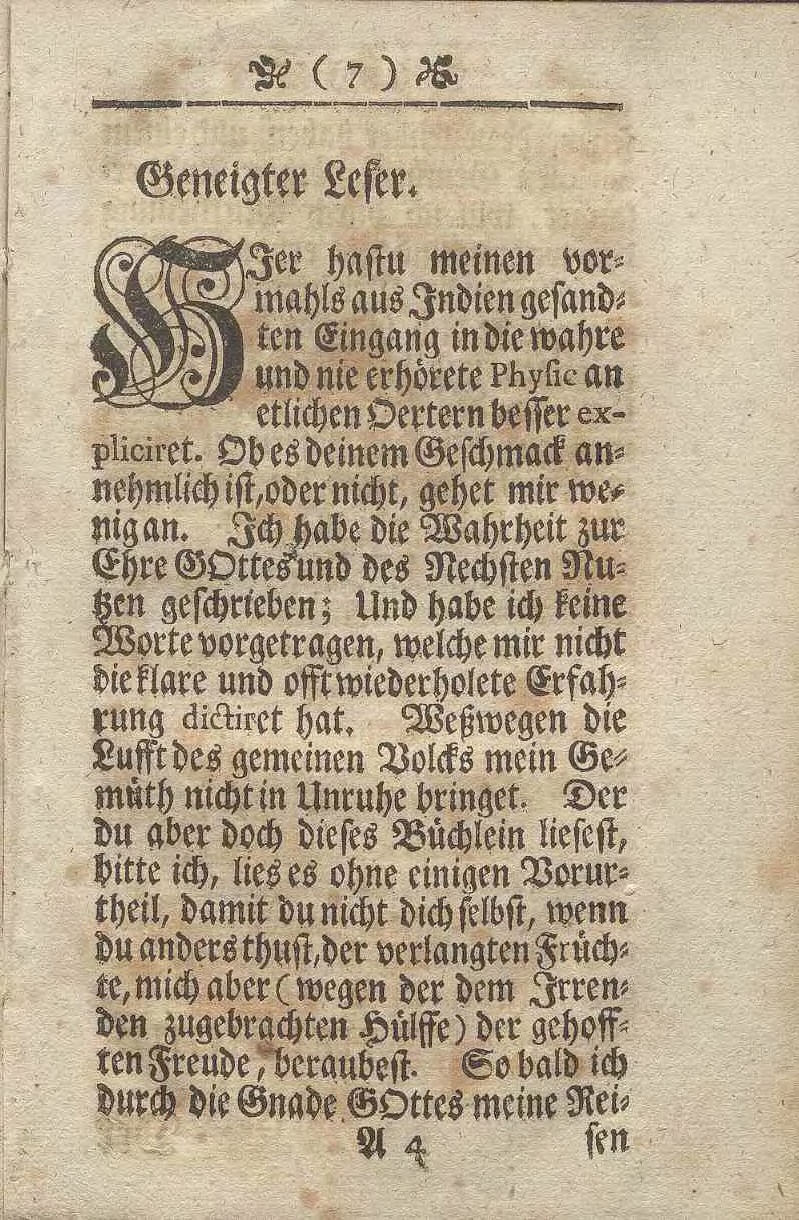 ( 7 )
Geneigter Leser.
HJer hastu meinen vor-
mahls aus Jndien gesand-
ten Eingang in die wahre
und nie erhörete Physic an
etlichen Oertern besser ex-
pliciret. Ob es deinem Geschmack an-
nehmlich ist, oder nicht, gehet mir we-
nig an. Jch habe die Wahrheit zur
Ehre GOttes und des Nechsten Nu-
tzen geschrieben; Und habe ich keine
Worte vorgetragen, welche mir nicht
die klare und offt wiederholete Erfah-
rung dictiret hat. Weßwegen die
Lufft des gemeinen Volcks mein Ge-
müth nicht in Unruhe bringet. Der
du aber doch dieses Büchlein liesest,
bitte ich, lies es ohne einigen Vorur-
theil, damit du nicht dich selbst, wenn
du anders thust, der verlangten Früch-
te, mich aber (wegen der dem Jrren-
den zugebrachten Hülffe) der gehoff-
ten Freude, beraubest. So bald ich
durch die Gnade GOttes meine Rei-
A 4 sen